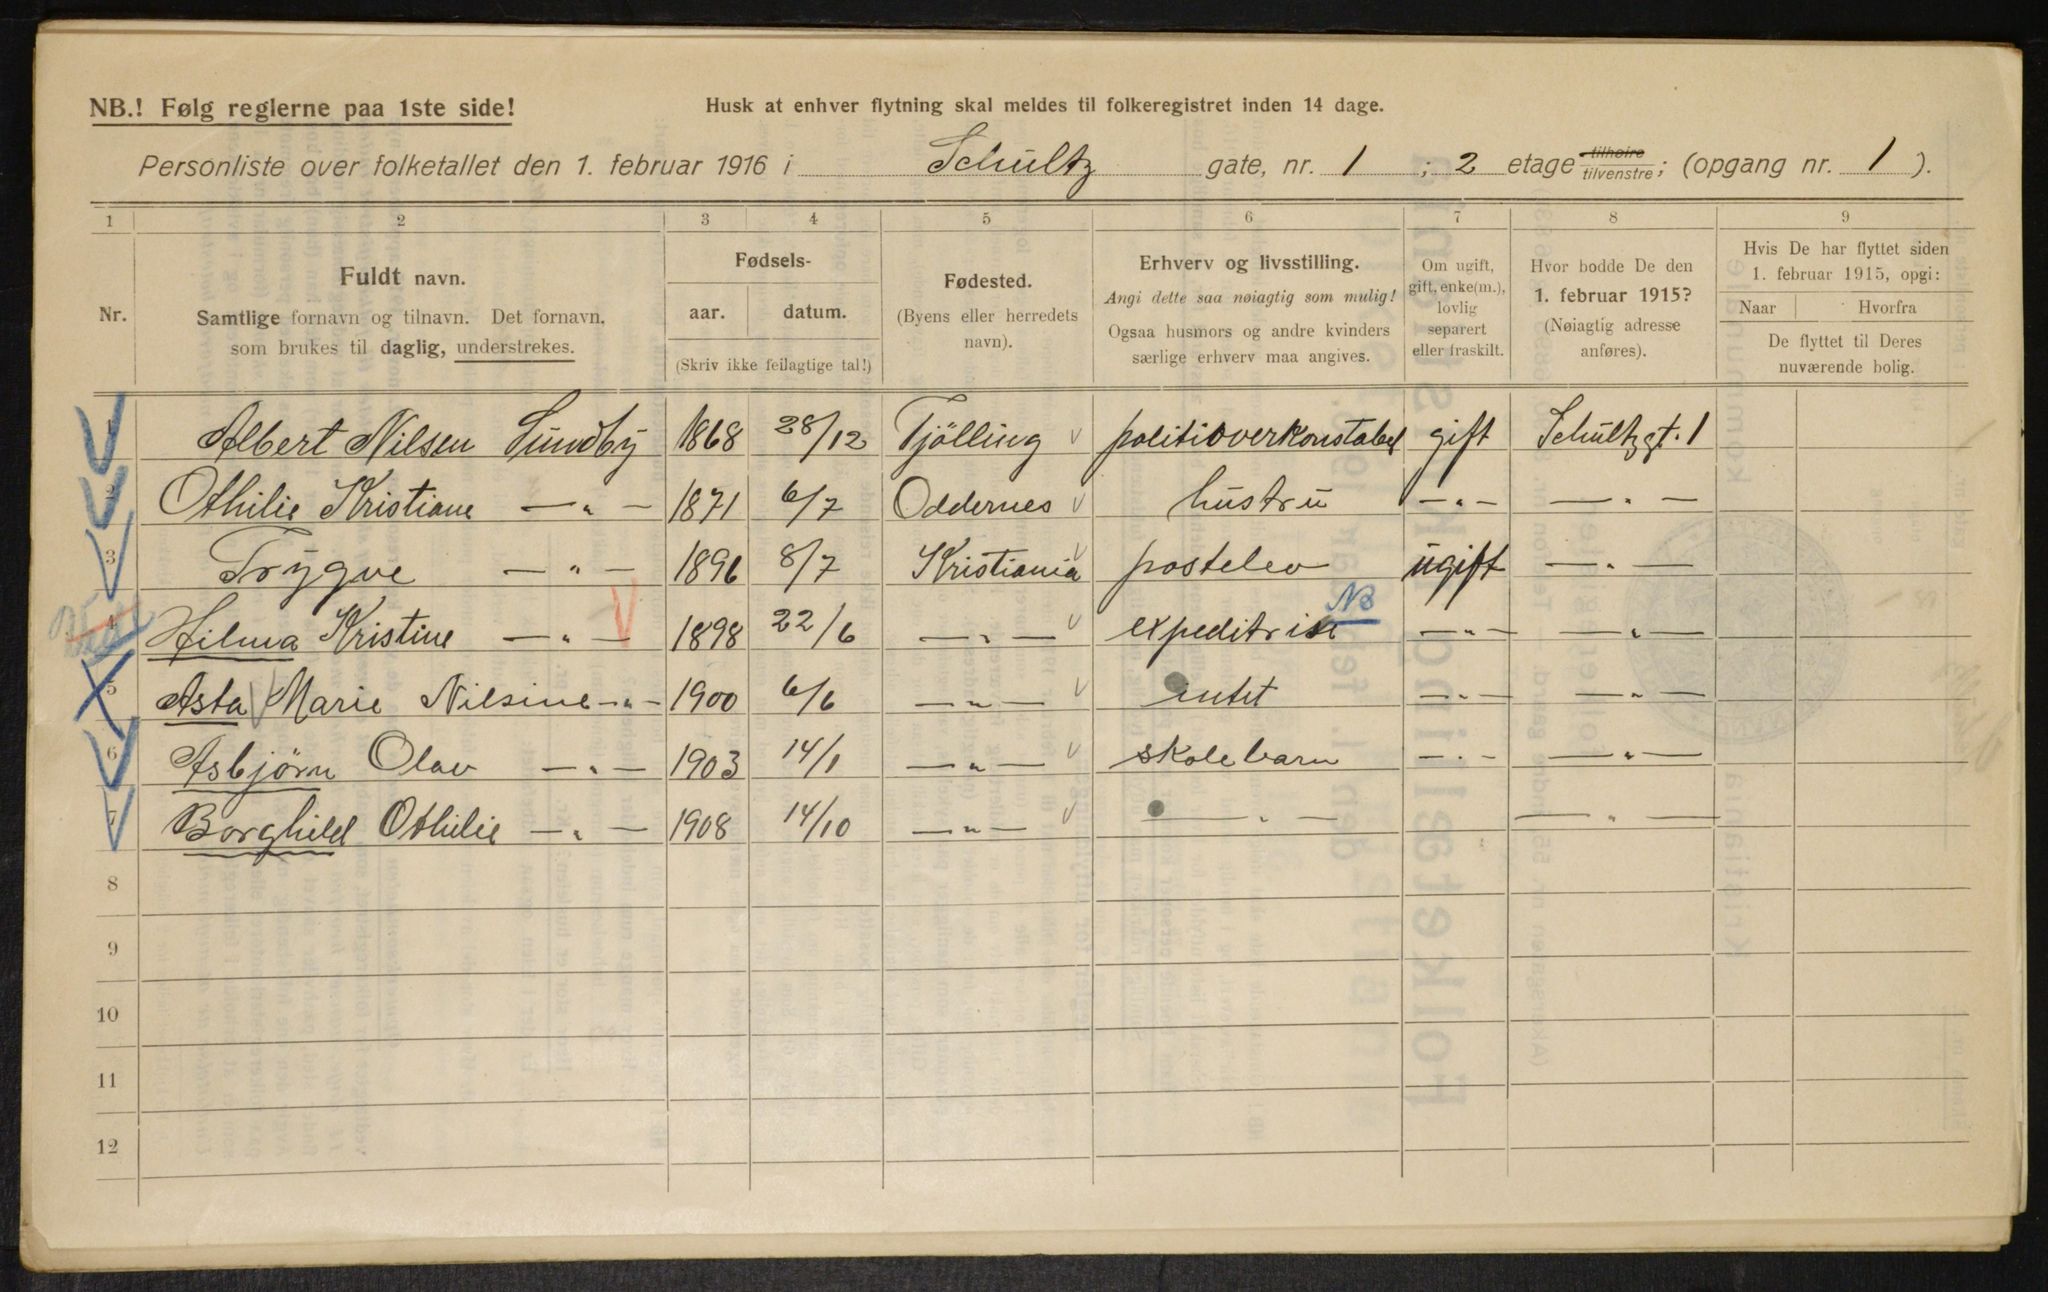 NB.! Følg reglerne paa 1ste side!
Husk at enhver flytning skal meldes til folkeregistret inden 14 dage.
Personliste over folketallet den 1. februar 1916 i Schultz gate, nr. 1 ; 2 etage tilhøire tilvenstre; (opgang nr. 1 ).
1 2 3 4 5 6 7 8 9
Nr.
Fuldt navn.
Samtlige fornavn og tilnavn. Det fornavn,
som brukes til daglig, understrekes.
Fødsels-
aar. datum.
(Skriv ikke feilagtige tal!)
Fødested.
(Byens eller herredets
navn).
Erhverv og livsstilling.
Angi dette saa nøiagtig som mulig!
Ogsaa husmors og andre kvinders
særlige erhverv maa angives.
Om ugift,
gift, enke(m.),
lovlig
separert
eller fraskilt.
Hvor bodde De den
1. februar 1915?
(Nøiagtig adresse
anføres).
Hvis De har flyttet siden
1. februar 1915, opgi:
Naar Hvorfra
De flyttet til Deres
nuværende bolig.
1 Albert Nilsen Sundby 1868 28/12 Tjölling politioverkonstabel gift Schultzgt. 1
2 Othilie Kristiane —„— 1871 6/7 Oddernes hustru —„— —„—
3 Trygve —„— 1896 8/7 Kristiania postelev ugift —„—
NB
4 Hilma Kristine —„— 1898 22/6 —„— expeditrise —„— —„—
5 Asta Marie Nilsine —„— 1900 6/6 —„— intet —„— —„—
6 Asbjørn Olav —„— 1903 14/1 —„— skolebarn —„— —„—
7 Borghild Othilie —„— 1908 14/10 —„— —„— —„—
8
9
10
11
12